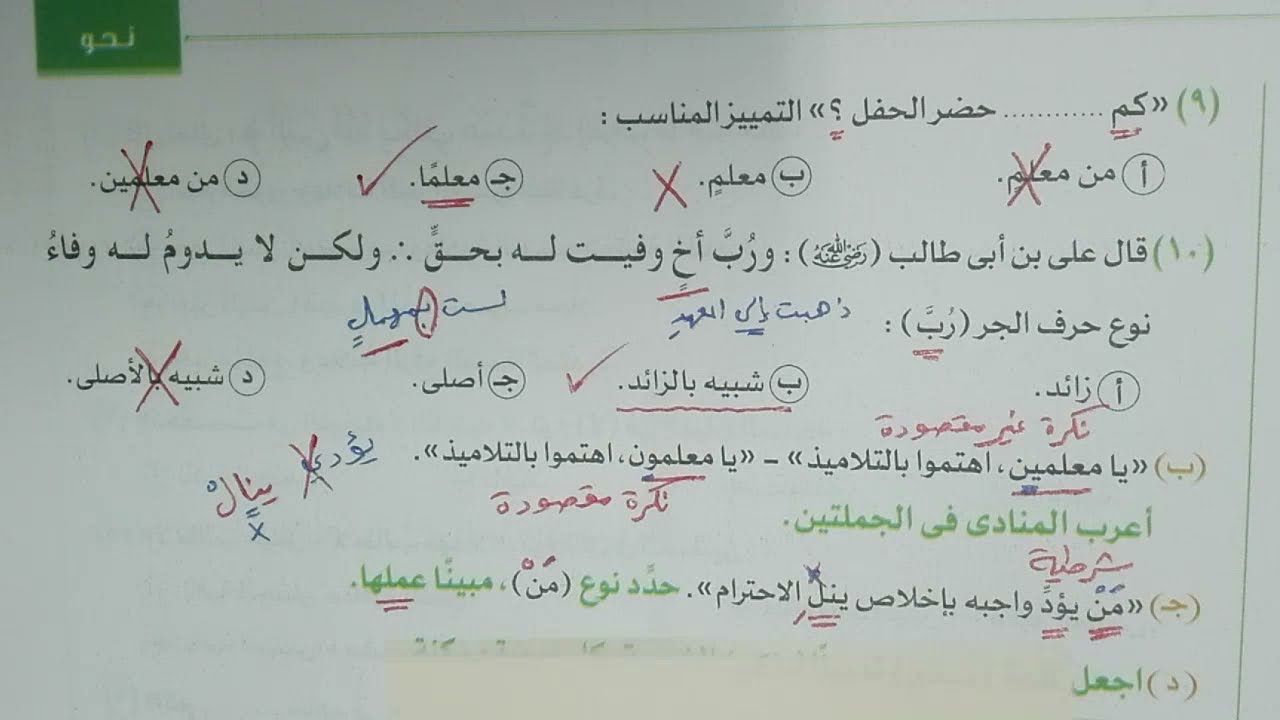 نحو
(٩) «كم ............ حضر الحفل ؟» التمييز المناسب :
أ من معلمٍ. ب معلمٍ. جـ معلمًا. د من معلمين.
(١٠) قال على بن أبى طالب (رضي الله عنه) : ورُبَّ أخٍ وفيت له بحقٍّ ∴ ولكن لا يدومُ له وفاءُ
ذهبت إلى العهدِ لست بمهملٍ
نوع حرف الجر (رُبَّ) :
أ زائد. ب شبيه بالزائد. جـ أصلى. د شبيه بالأصلى.
نكرة غير مقصودة
(ب) «يا معلمين، اهتموا بالتلاميذ» – «يا معلمون، اهتموا بالتلاميذ».
يؤدي ينالُ
نكرة مقصودة
أعرب المنادى فى الجملتين.
شرطية
(جـ) «مَنْ يؤدِّ واجبه بإخلاص ينلْ الاحترام». حدِّد نوع (مَنْ)، مبينًا عملها.
(د) اجعل